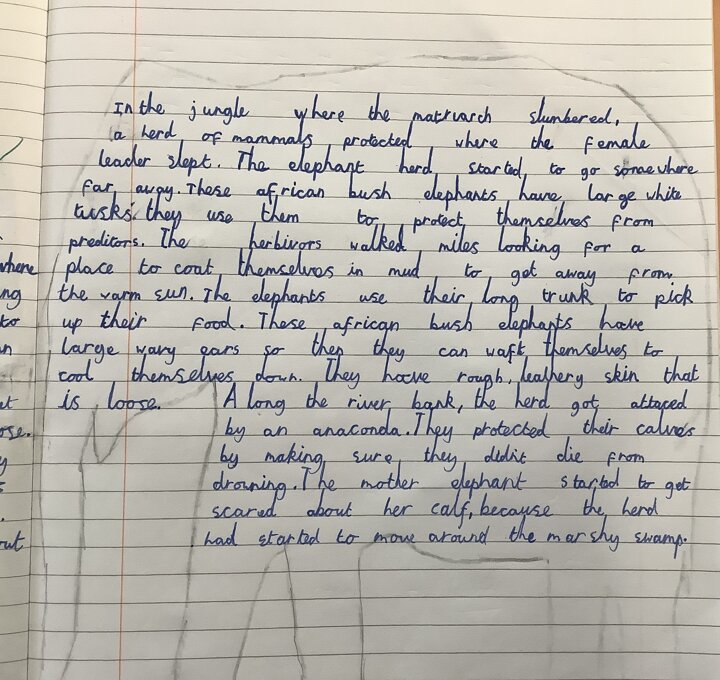 In the jungle where the matriarch slumbered,
a herd of mammals protected where the female
leader slept. The elephant herd started to go somewhere
far away. These african bush elephants have large white
tusks they use them to protect themselves from
preditors. The herbivors walked miles looking for a
where place to coat themselves in mud to get away from
ng the warm sun. The elephants use their long trunk to pick
to up their food. These african bush elephants have
n large wavy ears so then they can waft themselves to
cool themselves down. They have rough, leathery skin that
et is loose. Along the river bank, the herd got attaced
ose. by an anaconda. They protected their calves
y by making sure they didn't die from
s drowning. The mother elephant started to get
scared about her calf, because the herd
out had started to move around the marshy swamp.